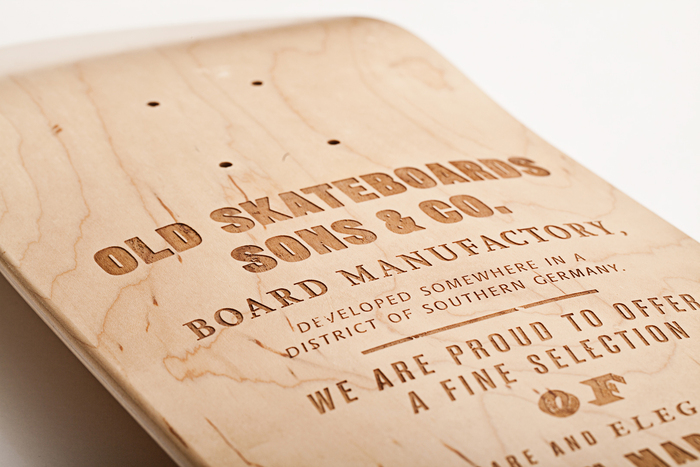 OLD SKATEBOARDS
SONS & CO.
BOARD MANUFACTORY,
DEVELOPED SOMEWHERE IN A
DISTRICT OF SOUTHERN GERMANY.
WE ARE PROUD TO OFFER
A FINE SELECTION
OF
AND